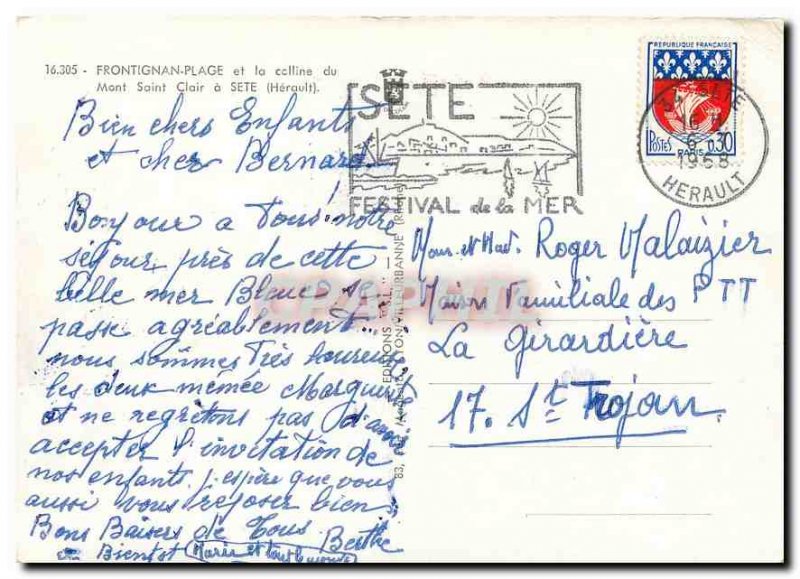 16.305 - FRONTIGNAN-PLAGE et la colline du
Mont Saint Clair à SETE (Hérault).
Bien chers Enfants
et cher Bernard
Bonjour a Tous notre
séjour près de cette
belle mer Bleue se
passe agréablement
nous sommes Très heureuses
les deux mémée Marguerite
et ne regrettons pas d'avoir
accepter l'invitation de
nos enfants. j'espère que vous
aussi vous reposer bien
Bons Baisers de Tous Berthe
Bientot Marie et tout le monde
SETE
FESTIVAL de la MER
REPUBLIQUE FRANÇAISE
POSTES PARIS 0,30
6
1968
HERAULT
EDITIONS
83,
Mons. et Mad. Roger Malaizier
Maison Familiale des PTT
La Girardière
17. St Trojan